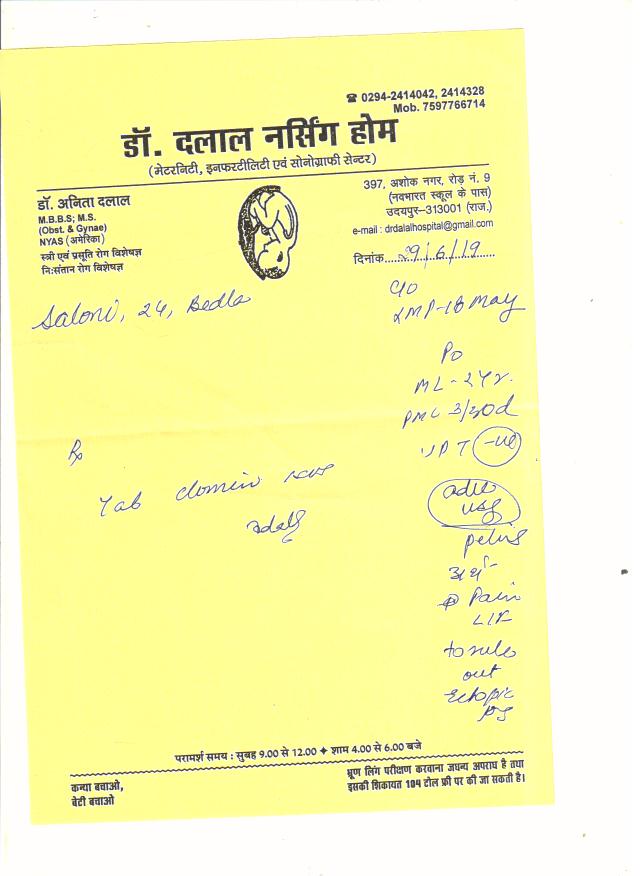 ☎ 0294-2414042, 2414328
Mob. 7597766714
डॉ. दलाल नर्सिंग होम
(मेटरनिटी, इनफरटीलिटी एवं सोनोग्राफी सेन्टर)
डॉ. अनिता दलाल
M.B.B.S; M.S.
(Obst. & Gynae)
NYAS (अमेरिका)
स्त्री एवं प्रसूति रोग विशेषज्ञ
नि:संतान रोग विशेषज्ञ
397, अशोक नगर, रोड़ नं. 9
(नवभारत स्कूल के पास)
उदयपुर–313001 (राज.)
e-mail : drdalalhospital@gmail.com
दिनांक.....29/6/19.....
Saloni, 24, Bedla
C/O
LMP-18 May
P0
ML - 2 Yr.
PMC 3/30d
UPT -ve
adv
usg
pelvis
Pain
LIF
to rule
out
Ectopic
pg
Rx
Tab
परामर्श समय : सुबह 9.00 से 12.00 ✦ शाम 4.00 से 6.00 बजे
कन्या बचाओ,
बेटी बचाओ
भ्रूण लिंग परीक्षण करवाना जघन्य अपराध है तथा
इसकी शिकायत 104 टोल फ्री पर की जा सकती है।